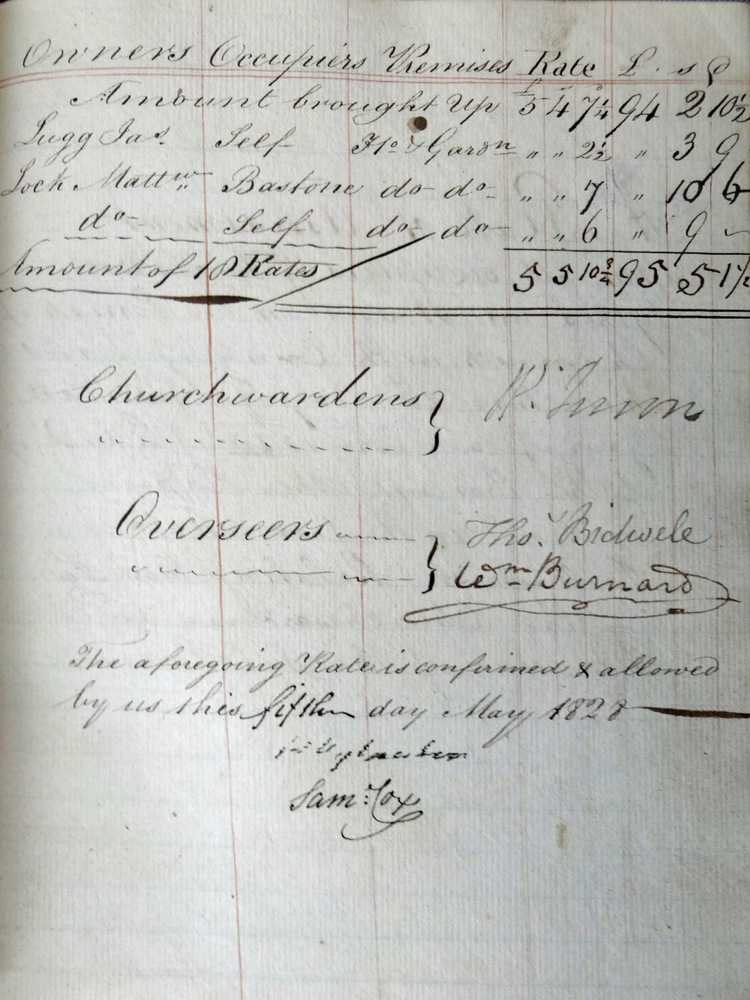 Owners Occupiers Premises Rate £ s d
Amount brought Up 5 4 7¼ 94 2 10½
Lugg Jas. Self Ho & Gardn „ „ 2½ „ 3 9
Lock Mattw. Bastone do do „ „ 7 „ 10 6
do Self do do „ „ 6 „ 9 -
Amount of 18 Rates 5 5 10¾ 95 5 1½
Churchwardens }
Overseers } Thos. Bidwele
Wm Burnard
The aforegoing Rate is confirmed & allowed
by us this fifth day May 1828
Saml: Cox